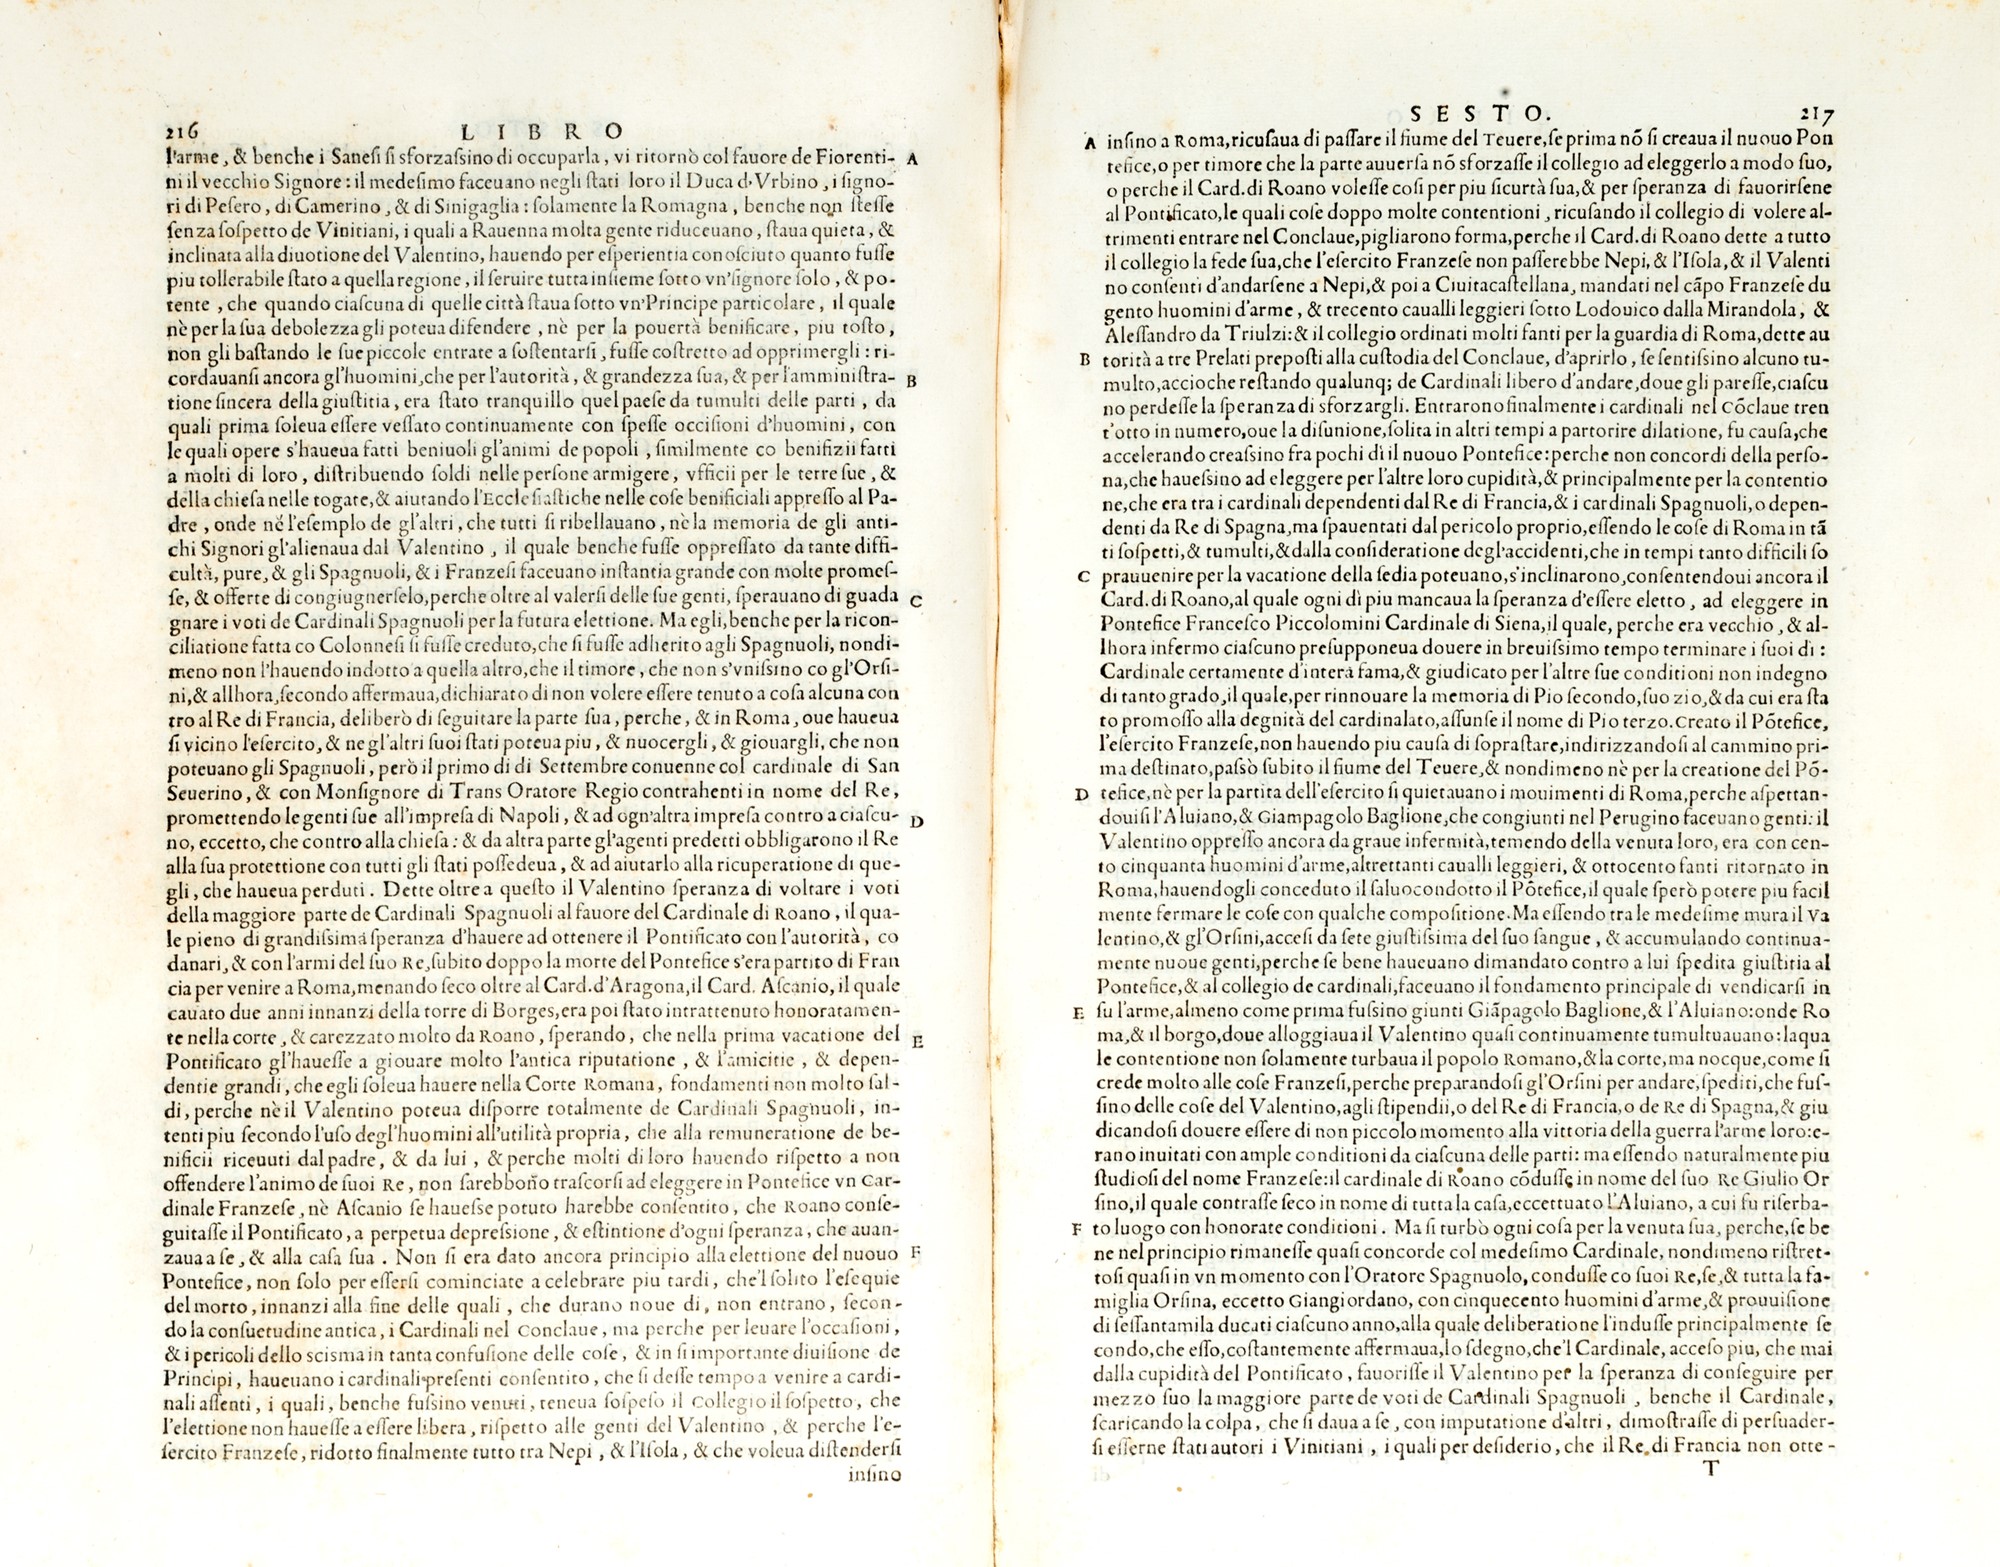 216 LIBRO
l'arme, & benche i Sanesi si sforzaſsino di occuparla, vi ritornò col fauore de Fiorenti- A
ni il vecchio Signore: il medeſimo faceuano negli ſtati loro il Duca d'Vrbino, i ſigno-
ri di Peſero, di Camerino, & di Sinigaglia: ſolamente la Romagna, benche non ſteſſe
ſenza ſoſpetto de Vinitiani, i quali a Rauenna molta gente riduceuano, ſtaua quieta, &
inclinata alla diuotione del Valentino, hauendo per eſperientia conoſciuto quanto fuſſe
piu tollerabile ſtato a quella regione, il ſeruire tutta inſieme ſotto vn'ſignore ſolo, & po-
tente, che quando ciaſcuna di quelle città ſtaua ſotto vn'Principe particolare, il quale
nè per la ſua debolezza gli poteua difendere, nè per la pouertà benificare, piu toſto,
non gli baſtando le ſue piccole entrate a ſoſtentarſi, fuſſe coſtretto ad opprimergli: ri-
cordauanſi ancora gl'huomini, che per l'autorità, & grandezza ſua, & per l'amminiſtra- B
tione ſincera della giuſtitia, era ſtato tranquillo quel paeſe da tumulti delle parti, da
quali prima ſoleua eſſere veſſato continuamente con ſpeſſe occiſioni d'huomini, con
le quali opere s'haueua fatti beniuoli gl'animi de popoli, ſimilmente co benifizii fatti
a molti di loro, diſtribuendo ſoldi nelle perſone armigere, vfficii per le terre ſue, &
della chieſa nelle togate, & aiutando l'Eccleſiaſtiche nelle coſe benificiali appreſſo al Pa-
dre, onde nè l'eſemplo de gl'altri, che tutti ſi ribellauano, nè la memoria de gli anti-
chi Signori gl'alienaua dal Valentino, il quale benche fuſſe oppreſſato da tante diffi-
cultà, pure, & gli Spagnuoli, & i Franzeſi faceuano inſtantia grande con molte promeſ-
ſe, & offerte di congiugnerſelo, perche oltre al valerſi delle ſue genti, ſperauano di guada C
gnare i voti de Cardinali Spagnuoli per la futura elettione. Ma egli, benche per la ricon-
ciliatione fatta co Colonneſi ſi fuſſe creduto, che ſi fuſſe adherito agli Spagnuoli, nondi-
meno non l'hauendo indotto a quella altro, che il timore, che non s'vniſsino co gl'Orſi-
ni, & allhora, ſecondo affermaua, dichiarato di non volere eſſere tenuto a coſa alcuna con
tro al Re di Francia, deliberò di ſeguitare la parte ſua, perche, & in Roma, oue haueua
ſi vicino l'eſercito, & negl'altri ſuoi ſtati poteua piu, & nuocergli, & giouargli, che non
poteuano gli Spagnuoli, però il primo di di Settembre conuenne col cardinale di San
Seuerino, & con Monſignore di Trans Oratore Regio contrahenti in nome del Re,
promettendo le genti ſue all'impreſa di Napoli, & ad ogn'altra impreſa contro a ciaſcu- D
no, eccetto, che contro alla chieſa: & da altra parte gl'agenti predetti obbligarono il Re
alla ſua protettione con tutti gli ſtati poſſedeua, & ad aiutarlo alla ricuperatione di que-
gli, che haueua perduti. Dette oltre a queſto il Valentino ſperanza di voltare i voti
della maggiore parte de Cardinali Spagnuoli al fauore del Cardinale di Roano, il qua-
le pieno di grandiſsima ſperanza d'hauere ad ottenere il Pontificato con l'autorità, co
danari, & con l'armi del ſuo Re, ſubito doppo la morte del Pontefice s'era partito di Fran
cia per venire a Roma, menando ſeco oltre al Card. d'Aragona, il Card. Aſcanio, il quale
cauato due anni innanzi della torre di Borges, era poi ſtato intrattenuto honoratamen-
te nella corte, & carezzato molto da Roano, ſperando, che nella prima vacatione del E
Pontificato gl'haueſſe a giouare molto l'antica riputatione, & l'amicitie, & depen-
dentie grandi, che egli ſoleua hauere nella Corte Romana, fondamenti non molto ſal-
di, perche nè il Valentino poteua diſporre totalmente de Cardinali Spagnuoli, in-
tenti piu ſecondo l'uſo degl'huomini all'utilità propria, che alla remuneratione de be-
nificii riceuuti dal padre, & da lui, & perche molti di loro hauendo riſpetto a non
offendere l'animo de ſuoi Re, non ſarebbono traſcorſi ad eleggere in Pontefice vn Car-
dinale Franzeſe, nè Aſcanio ſe hauefse potuto harebbe conſentito, che Roano conſe-
guitaſſe il Pontificato, a perpetua depreſsione, & eſtintione d'ogni ſperanza, che auan-
zaua a ſe, & alla caſa ſua. Non ſi era dato ancora principio alla elettione del nuouo F
Pontefice, non ſolo per eſſerſi cominciate a celebrare piu tardi, che'l ſolito l'eſequie
del morto, innanzi alla fine delle quali, che durano noue di, non entrano, ſecon-
do la conſuetudine antica, i Cardinali nel Conclaue, ma perche per leuare l'occaſioni,
& i pericoli dello scisma in tanta confuſione delle coſe, & in ſi importante diuiſione de
Principi, haueuano i cardinali preſenti conſentito, che ſi deſſe tempo a venire a cardi-
nali aſſenti, i quali, benche fuſsino venuti, teneua ſoſpeſo il Collegio il ſoſpetto, che
l'elettione non haueſſe a eſſere libera, riſpetto alle genti del Valentino, & perche l'e-
ſercito Franzeſe, ridotto finalmente tutto tra Nepi, & l'Iſola, & che voleua diſtenderſi
inſino
SESTO. 217
A inſino a Roma, ricuſaua di paſſare il fiume del Teuere, ſe prima nõ ſi creaua il nuouo Pon
tefice, o per timore che la parte auuerſa nõ sforzaſſe il collegio ad eleggerlo a modo ſuo,
o perche il Card. di Roano voleſſe coſi per piu ſicurtà ſua, & per ſperanza di fauorirſene
al Pontificato, le quali coſe doppo molte contentioni, ricuſando il collegio di volere al-
trimenti entrare nel Conclaue, pigliarono forma, perche il Card. di Roano dette a tutto
il collegio la fede ſua, che l'eſercito Franzeſe non paſſerebbe Nepi, & l'Iſola, & il Valenti
no conſenti d'andarſene a Nepi, & poi a Ciuitacaſtellana, mandati nel cãpo Franzeſe du
gento huomini d'arme, & trecento caualli leggieri ſotto Lodouico dalla Mirandola, &
Aleſſandro da Triulzi: & il collegio ordinati molti fanti per la guardia di Roma, dette au
B torità a tre Prelati prepoſti alla cuſtodia del Conclaue, d'aprirlo, ſe ſentiſsino alcuno tu-
multo, accioche reſtando qualunq; de Cardinali libero d'andare, doue gli pareſſe, ciaſcu
no perdeſſe la ſperanza di sforzargli. Entrarono finalmente i cardinali nel Cõclaue tren
t'otto in numero, oue la diſunione, ſolita in altri tempi a partorire dilatione, fu cauſa, che
accelerando creaſsino fra pochi dì il nuouo Pontefice: perche non concordi della perſo-
na, che haueſsino ad eleggere per l'altre loro cupidità, & principalmente per la contentio
ne, che era tra i cardinali dependenti dal Re di Francia, & i cardinali Spagnuoli, o depen-
denti da Re di Spagna, ma ſpauentati dal pericolo proprio, eſſendo le coſe di Roma in tã
ti ſoſpetti, & tumulti, & dalla conſideratione degl'accidenti, che in tempi tanto difficili ſo
C prauuenire per la vacatione della ſedia poteuano, s'inclinarono, conſentendoui ancora il
Card. di Roano, al quale ogni dì piu mancaua la ſperanza d'eſſere eletto, ad eleggere in
Pontefice Franceſco Piccolomini Cardinale di Siena, il quale, perche era vecchio, & al-
lhora infermo ciaſcuno preſupponeua douere in breuiſsimo tempo terminare i ſuoi dì:
Cardinale certamente d'intera fama, & giudicato per l'altre ſue conditioni non indegno
di tanto grado, il quale, per rinnouare la memoria di Pio ſecondo, ſuo zio, & da cui era ſta
to promoſſo alla degnità del cardinalato, aſſunſe il nome di Pio terzo. Creato il Põtefice,
l'eſercito Franzeſe, non hauendo piu cauſa di ſopraſtare, indirizzandoſi al cammino pri-
ma deſtinato, paſsò ſubito il fiume del Teuere, & nondimeno nè per la creatione del Põ-
D tefice, nè per la partita dell'eſercito ſi quietauano i mouimenti di Roma, perche aſpettan-
douiſi l'Aluiano, & Giampagolo Baglione, che congiunti nel Perugino faceuano genti: il
Valentino oppreſſo ancora da graue infermità, temendo della venuta loro, era con cen-
to cinquanta huomini d'arme, altrettanti caualli leggieri, & ottocento fanti ritornato in
Roma, hauendogli conceduto il ſaluocondotto il Põtefice, il quale ſperò potere piu facil
mente fermare le coſe con qualche compoſitione. Ma eſſendo tra le medeſime mura il Va
lentino, & gl'Orſini, acceſi da ſete giuſtiſsima del ſuo ſangue, & accumulando continua-
mente nuoue genti, perche ſe bene haueuano dimandato contro a lui ſpedita giuſtitia al
Pontefice, & al collegio de cardinali, faceuano il fondamento principale di vendicarſi in
E su l'arme, almeno come prima fuſsino giunti Giãpagolo Baglione, & l'Aluiano: onde Ro
ma, & il borgo, doue alloggiaua il Valentino quaſi continuamente tumultuauano: laqua
le contentione non ſolamente turbaua il popolo Romano, & la corte, ma nocque, come ſi
crede molto alle coſe Franzeſi, perche preparandoſi gl'Orſini per andare, ſpediti, che fuſ-
ſino delle coſe del Valentino, agli ſtipendii, o del Re di Francia, o de Re di Spagna, & giu
dicandoſi douere eſſere di non piccolo momento alla vittoria della guerra l'arme loro: e-
rano inuitati con ample conditioni da ciaſcuna delle parti: ma eſſendo naturalmente piu
ſtudioſi del nome Franzeſe: il cardinale di Roano cõduſſe in nome del ſuo Re Giulio Or
ſino, il quale contraſſe ſeco in nome di tutta la caſa, eccettuato l'Aluiano, a cui fu riſerba-
F to luogo con honorate conditioni. Ma ſi turbò ogni coſa per la venuta ſua, perche, ſe be
ne nel principio rimaneſſe quaſi concorde col medeſimo Cardinale, nondimeno riſtret-
toſi quaſi in vn momento con l'Oratore Spagnuolo, conduſſe co ſuoi Re, ſe, & tutta la fa-
miglia Orſina, eccetto Giangiordano, con cinquecento huomini d'arme, & prouuiſione
di ſeſſantamila ducati ciaſcuno anno, alla quale deliberatione l'induſſe principalmente ſe
condo, che eſſo, coſtantemente affermaua, lo ſdegno, che'l Cardinale, acceſo piu, che mai
dalla cupidità del Pontificato, fauoriſſe il Valentino per la ſperanza di conſeguire per
mezzo ſuo la maggiore parte de voti de Cardinali Spagnuoli, benche il Cardinale,
ſcaricando la colpa, che ſi daua a ſe, con imputatione d'altri, dimoſtraſſe di perſuader-
ſi eſſerne ſtati autori i Vinitiani, i quali per deſiderio, che il Re di Francia non otte-
T